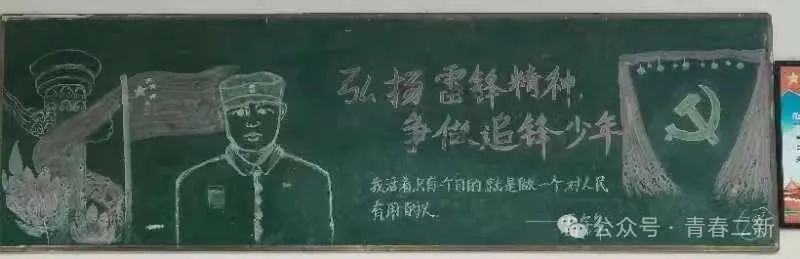 弘扬雷锋精神,
争做追锋少年
我活着,只有一个目的,就是做一个对人民
有用的人.
公众号·青春二新